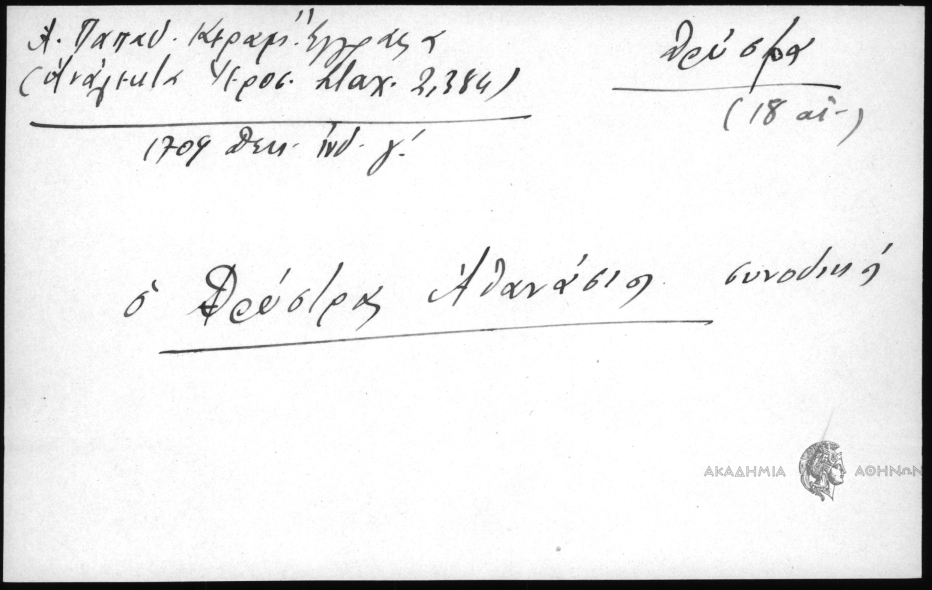 Α. Παπαδ. Κεραμ. Ἔγγραφα
(Ἀνάλεκτα Ἱεροσ. Σταχ. 2,384)
Δρύστρα
(18 αἰ.)
1709 Δεκ. ἰνδ. γ΄.
ὁ Δρύστρας Ἀθανάσιος συνοδικῆς
ΑΚΑΔΗΜΙΑ ΑΘΗΝΩΝ